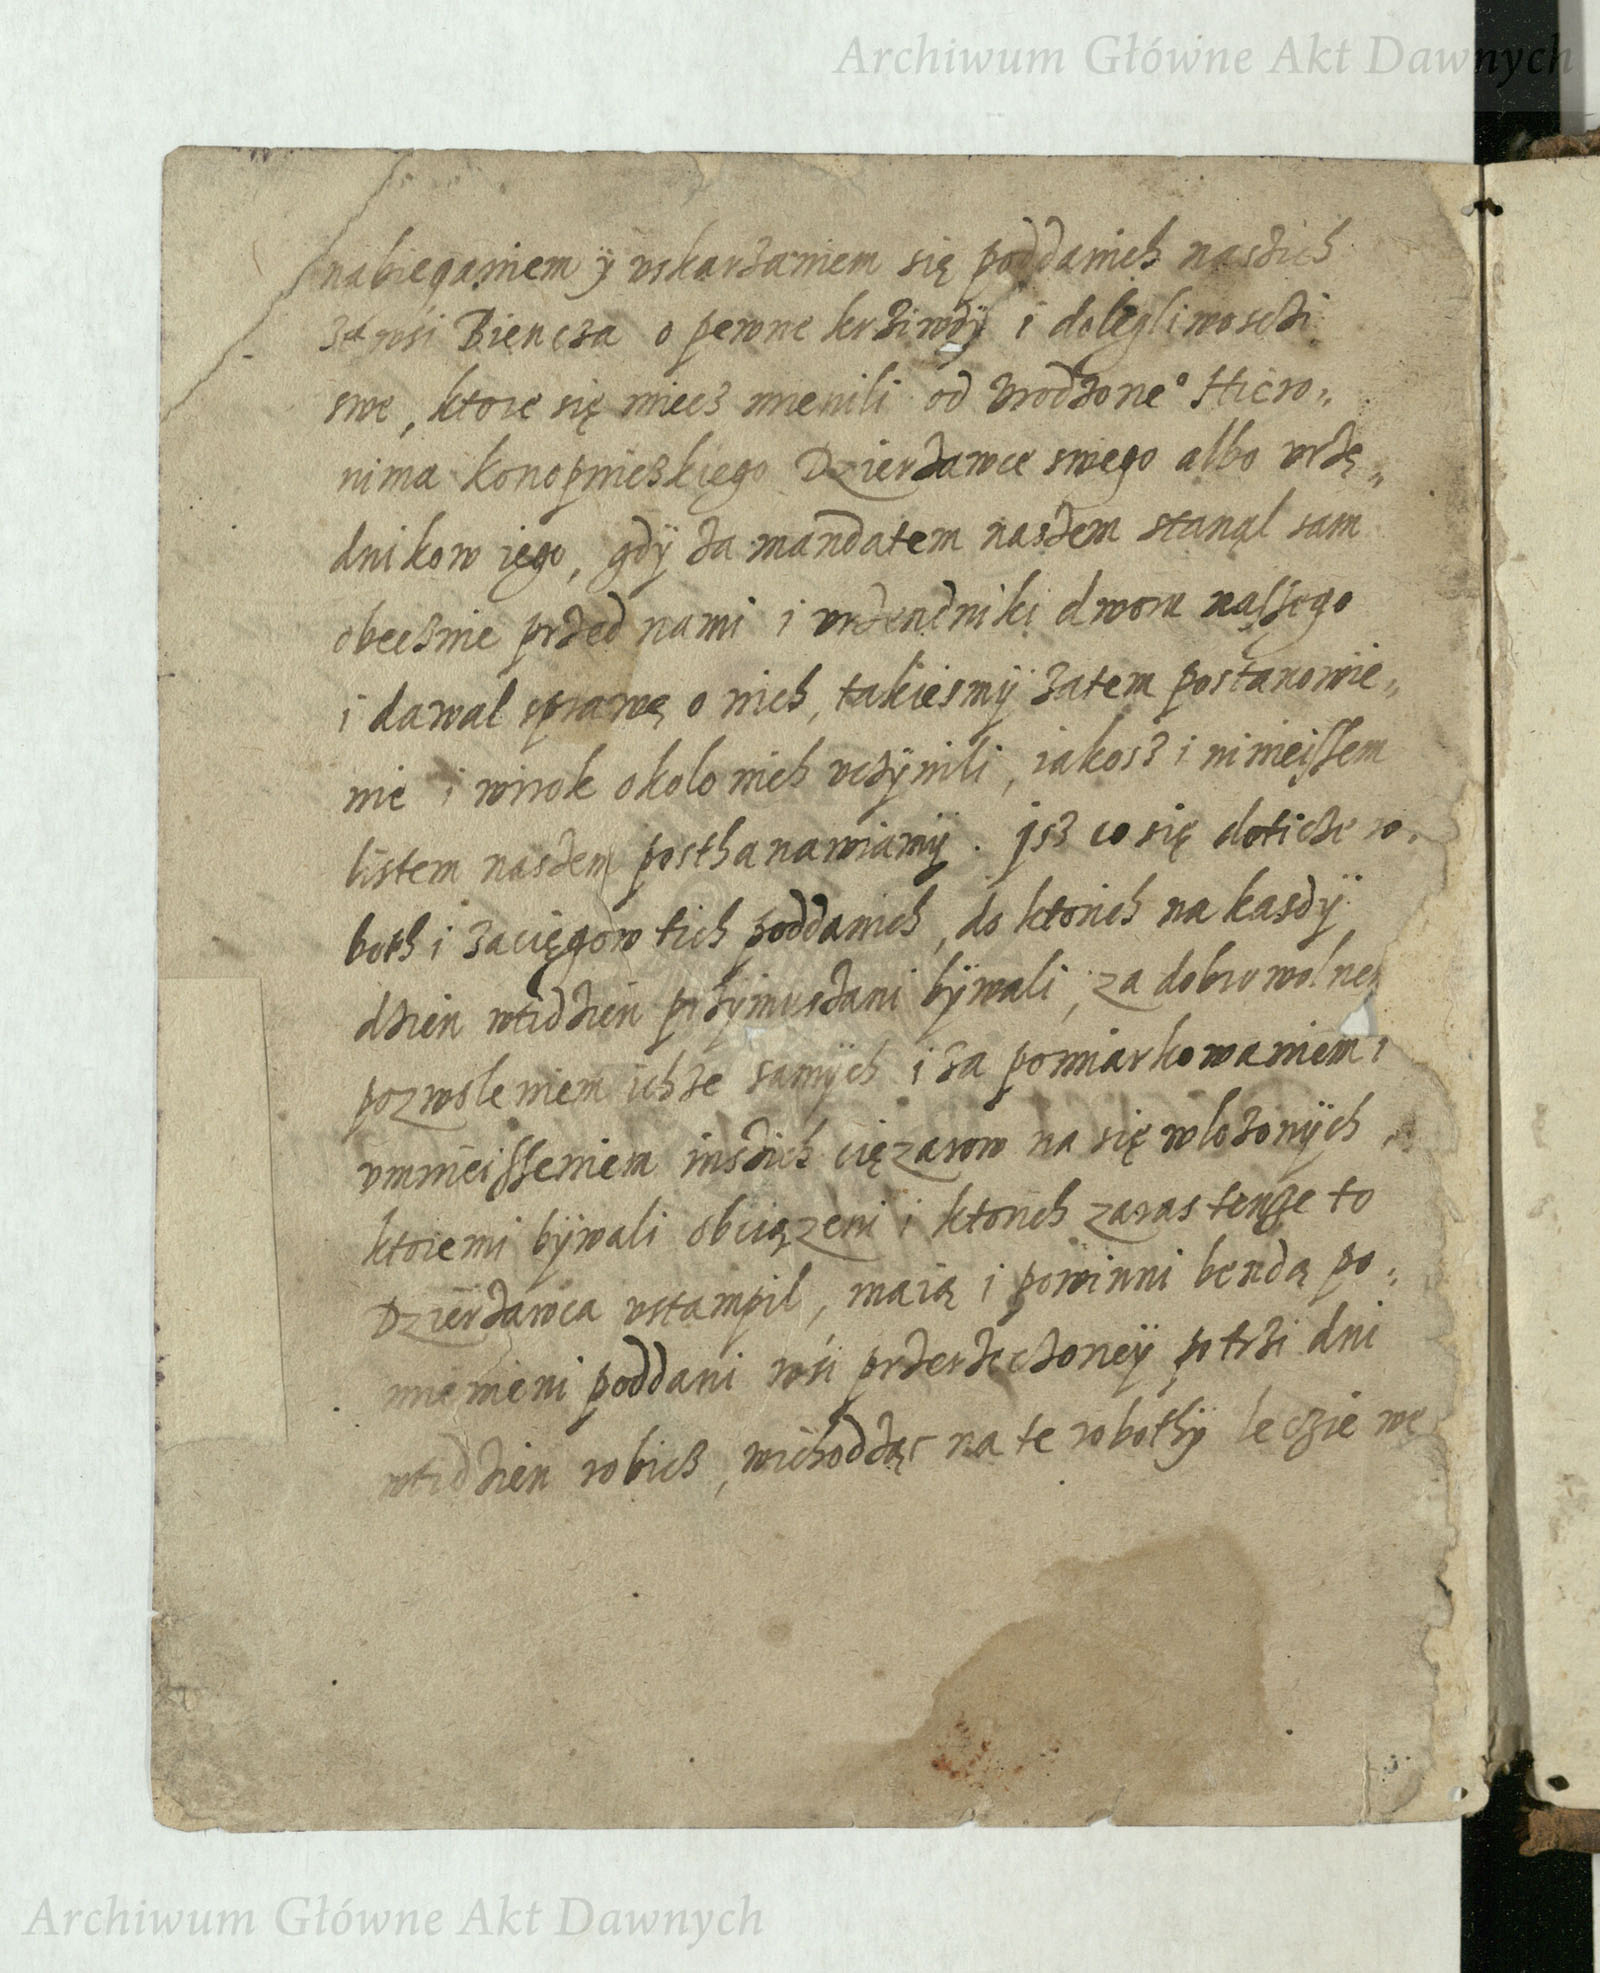 Archiwum Główne Akt Dawnych
nabieganiem ÿ vskarzaniem się poddanich naszich
ze wśi Biencza o pewne krziwdÿ i dolegliwosczi
swe, ktore się miecz mienili od Vrodzone° Hiero„
nima Konopnieskiego Dzierzawce swego albo vrzę„
dnikow iego, gdÿ za mandatem naszem stanąl sam
obecznie przed nami i vrzendniki dworu nassego
i dawal sprawę o nich, takiesmÿ zatem postanowie„
nie i wirok okolo nich vczÿnili, iakosz i ninieissem
listem naszem posthanawiamÿ. jsz co się doticze ro„
both i zacięgow tich poddanich, do ktorich na kasdÿ
dzien wtidzien przÿmuszani bÿwali, za dobrowolnem
pozwoleniem ichze samÿch i za pomiarkowaniem i
vmnieisseniem inszich cięzarow na się wlozonÿch,
ktoremi bÿwali obciązeni i ktorich zaras tenze to
Dzierzawca vstampil, maią i powinni bendą po„
mienieni poddani wśi przerzeczoneÿ po trzi dni
wtidzien robicz, wichodząc na te robothÿ leczie we
Archiwum Główne Akt Dawnych